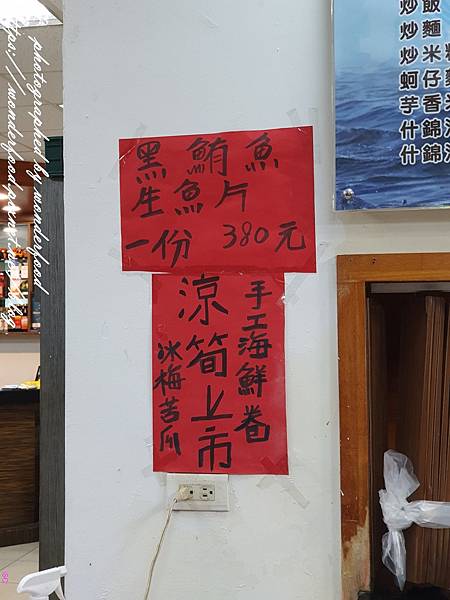 黑鮪魚
生魚片
一份 380元
手工海鮮卷
涼筍上市
冰梅苦瓜
炒飯
炒麵
炒米粉
蚵仔麵
芋香米
什錦湯
什錦
photographed by wonderfood
https://wonderfood.pixnet.net/blog